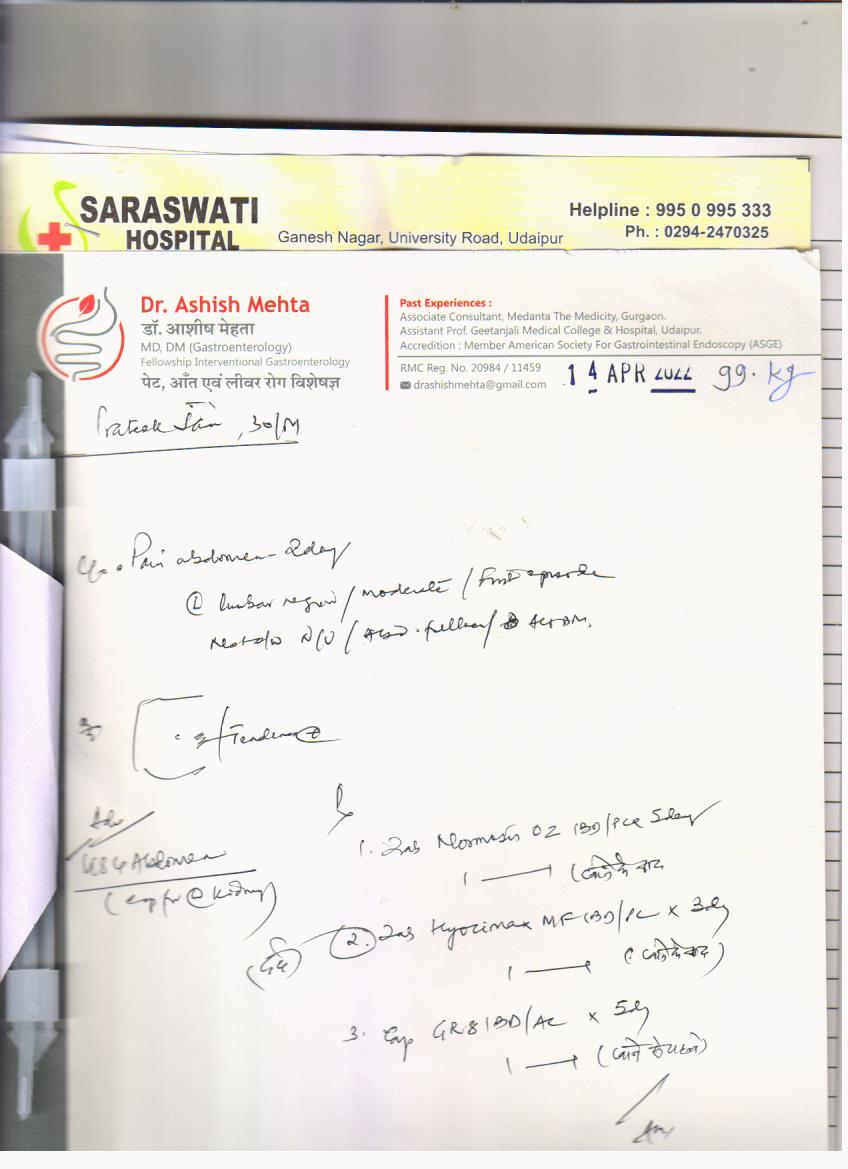 SARASWATI
HOSPITAL
Ganesh Nagar, University Road, Udaipur
Helpline : 995 0 995 333
Ph. : 0294-2470325
Dr. Ashish Mehta
डॉ. आशीष मेहता
MD, DM (Gastroenterology)
Fellowship Interventional Gastroenterology
पेट, आँत एवं लीवर रोग विशेषज्ञ
Past Experiences :
Associate Consultant, Medanta The Medicity, Gurgaon.
Assistant Prof. Geetanjali Medical College & Hospital, Udaipur.
Accreditation : Member American Society For Gastrointestinal Endoscopy (ASGE)
RMC Reg. No. 20984 / 11459
drashishmehta@gmail.com
14 APR 2022 99. kg
Prateek Jain, 30/M
Pain abdomen - 2day
Ⓛ lumbar region / moderate / First episode
N/V /
/ Tenderness
Adv
USG Abdomen
Kidney)
1. Tab 1BD/PC x 5day
1 (खाने के बाद
(दर्द) 2. Tab Hyocimax MF 1BD/PC x 3day
1 (खाने के बाद)
3. Cap GR8 1BD/AC x 5day
1 (खाने से पहले)